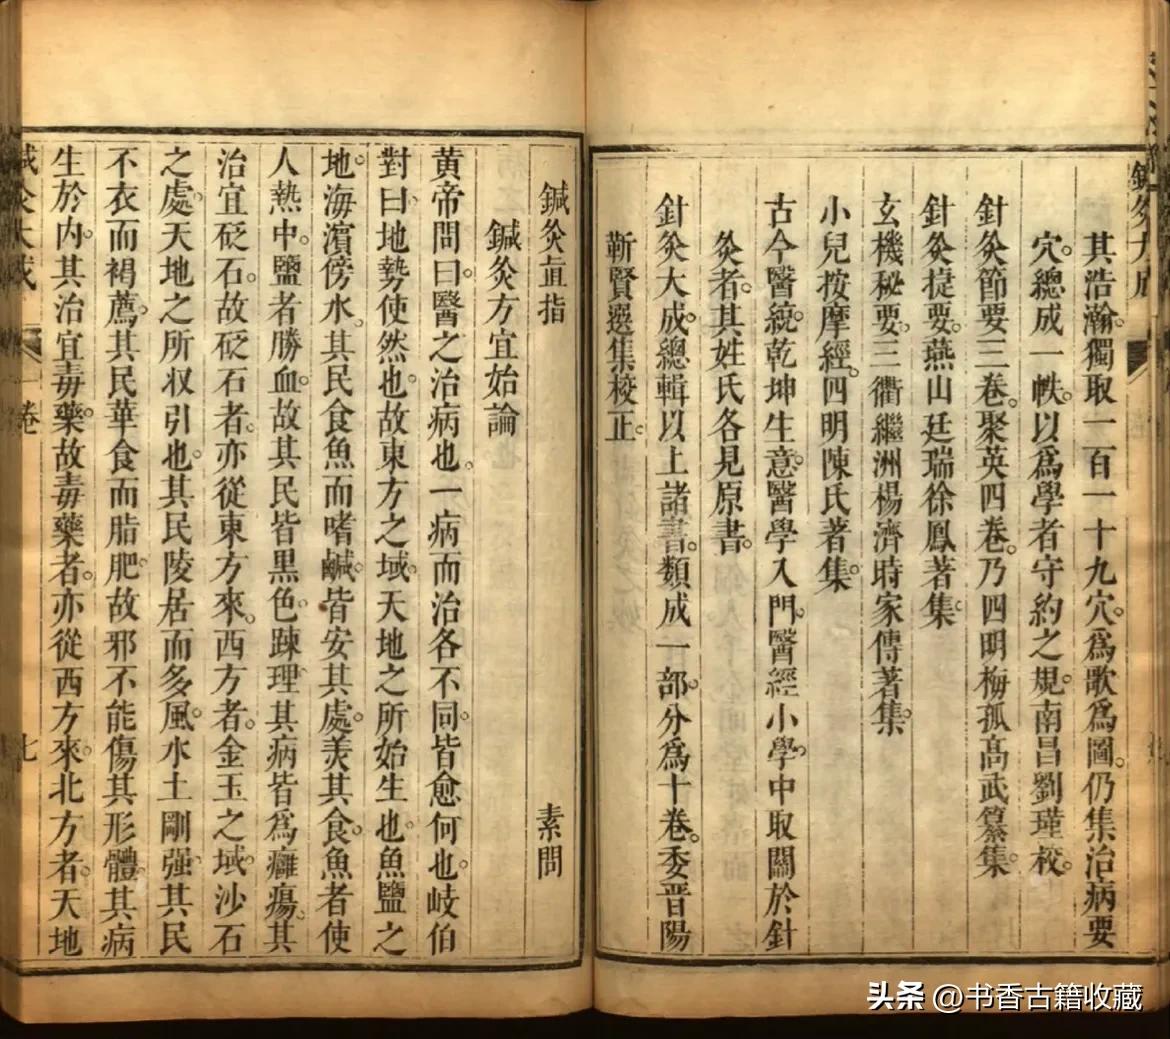 鍼灸大成
其浩瀚。獨取一百一十九穴。爲歌爲圖。仍集治病要
穴。總成一帙。以爲學者守約之規。南昌劉瑾校。
針灸節要三卷。聚英四卷。乃四明梅孤高武纂集。
針灸捷要。燕山廷瑞徐鳳著集。
玄機秘要。三衢繼洲楊濟時家傳著集。
小兒按摩經。四明陳氏著集。
古今醫統。乾坤生意。醫學入門。醫經小學。中取關於針
灸者。其姓氏各見原書。
針灸大成。總輯以上諸書。類成一部。分爲十卷。委晉陽
靳賢選集校正。
鍼灸直指 素問
鍼灸方宜始論
黃帝問曰。醫之治病也。一病而治各不同。皆愈何也。岐伯
對曰。地勢使然也。故東方之域。天地之所始生也。魚鹽之
地。海濱傍水。其民食魚而嗜鹹。皆安其處。美其食。魚者使
人熱中。鹽者勝血。故其民皆黑色。踈理。其病皆爲癰瘍。其
治宜砭石。故砭石者。亦從東方來。西方者。金玉之域。沙石
之處。天地之所収引也。其民陵居而多風。水土剛强。其民
不衣而褐薦。其民華食而脂肥。故邪不能傷其形體。其病
生於内。其治宜毒藥。故毒藥者。亦從西方來。北方者。天地
鍼灸大成 卷 七
头条 @书香古籍收藏